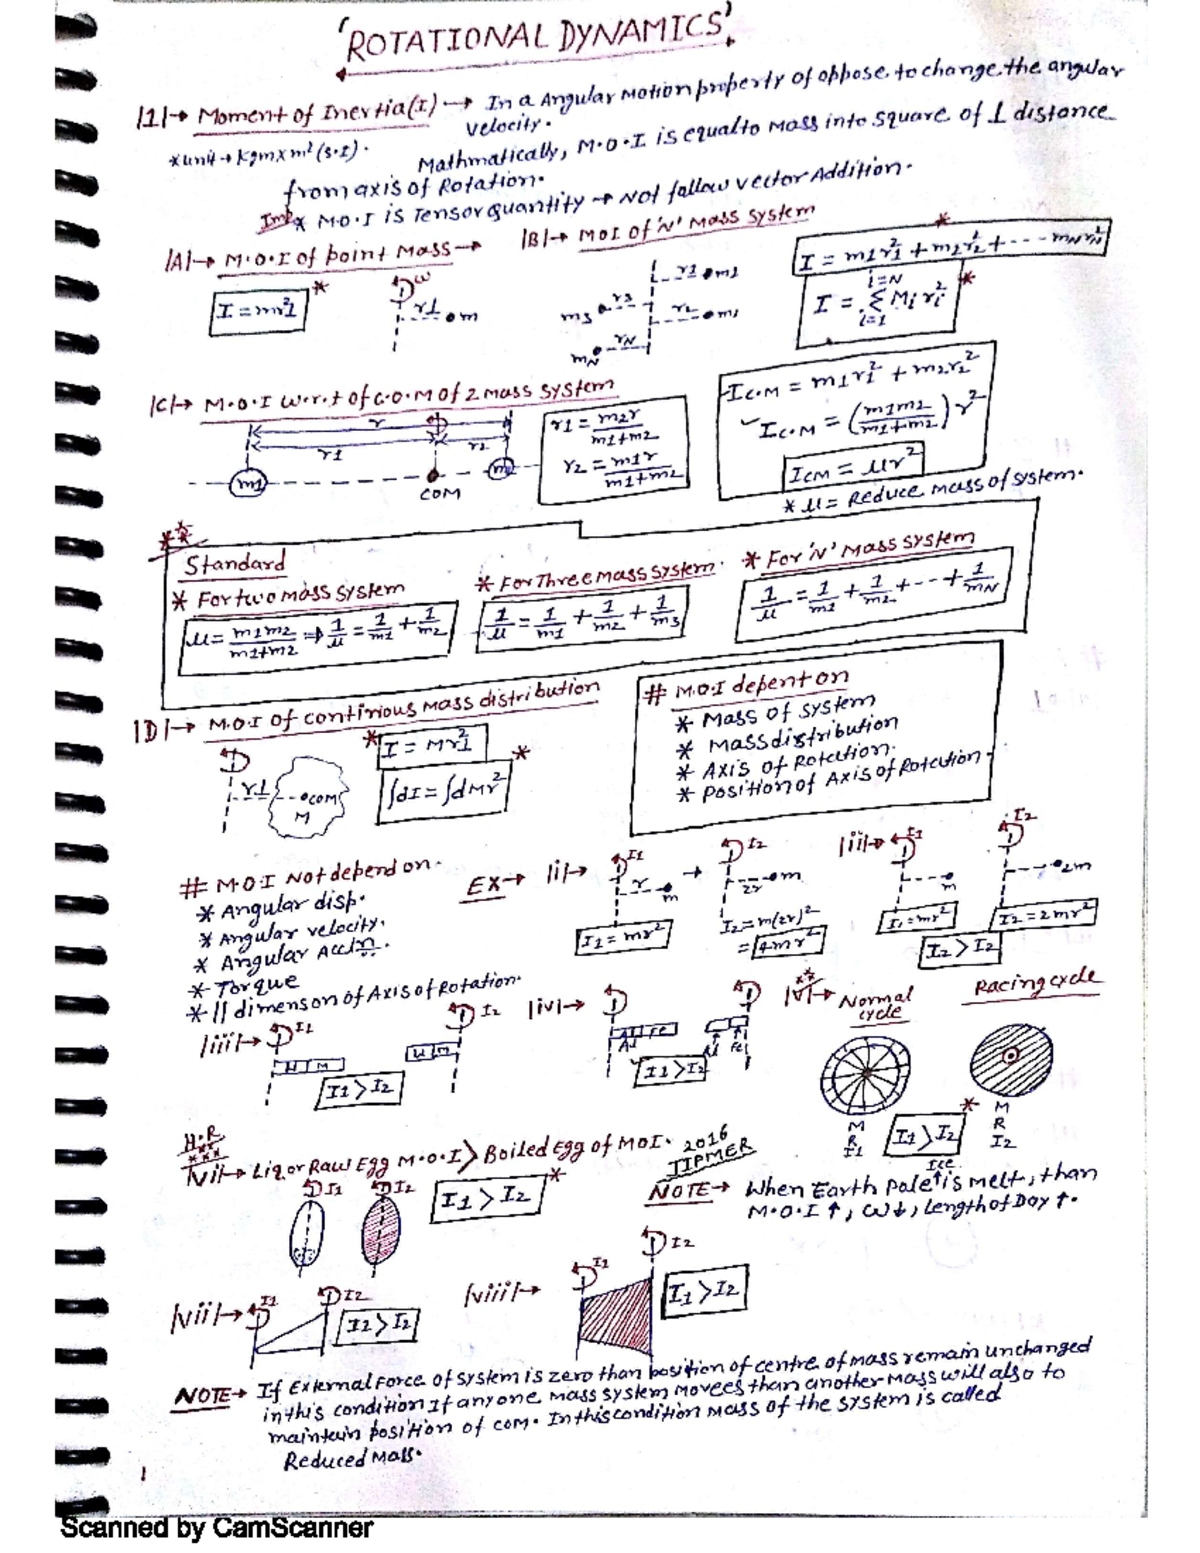 'ROTATIONAL DYNAMICS'
|1|→ Moment of Inertia(I) → In a Angular Motion property of oppose to change the angular
velocity.
*unit→ Kgm×m²(S.I).
Mathmatically, M.O.I is equal to Mass into square of ⊥ distance
from axis of Rotation.
Imp* M.O.I is Tensor quantity → Not follow vector Addition.
|A|→ M.O.I of point Mass→
|B|→ MOI of 'N' Mass system
I = mr²⊥ *
ω
r⊥
m
r1 m1
r3
m3
r2 m2
rN
mN
I = m1r1² + m2r2² + --- mNrN² *
i=N
I = Σ Mi ri² *
i=1
|C|→ M.O.I w.r.t of C.O.M of 2 mass system
r
r1
r2
m1
COM
m2
r1 = m2r / m1+m2
r2 = m1r / m1+m2
IC.M = m1r1² + m2r2²
IC.M = (m1m2 / m1+m2) r²
ICM = μr²
* μ = Reduce mass of system.
**
Standard
* For two mass system
μ = m1m2 / m1+m2 ⇒ 1/μ = 1/m1 + 1/m2
* For Three mass system.
1/μ = 1/m1 + 1/m2 + 1/m3
* For 'N' Mass system
1/μ = 1/m1 + 1/m2 + -- + 1/mN
|D|→ M.O.I of continious Mass distribution
r⊥
COM
M
* I = Mr²⊥
∫dI = ∫dMr² *
# M.O.I depent on
* Mass of system
* Mass distribution
* Axis of Rotation.
* Position of Axis of Rotation.
# M.O.I Not depend on.
* Angular disp.
* Angular velocity.
* Angular Accln.
* Torque
* || dimenson of Axis of Rotation.
EX→ |i|→
I1
r
m
→
I2
2r
m
I1 = mr²
I2 = m(2r)²
= 4mr²
|ii|→
I1
m
I2
2m
I1 = mr²
I2 = 2mr²
I2 > I1
|iii|→
I1
H M
I2
H M
I1 > I2
|iv|→
Al Fe
Al Fe
I1 > I2
|v|→ Normal
cycle
Racing cycle
M
R
I1
I1 > I2 *
M
R
I2
H.R
***
|vi|→ Liq. or Raw Egg M.O.I > Boiled Egg of MOI.
2016
JIPMER
I1
I2
I1 > I2 *
NOTE→ When Earth Pole Ice is melt, than
M.O.I ↑, ω↓, length of Day ↑.
|vii|→
I1
I2
I1 > I2
|viii|→
I1
I2
I1 > I2
NOTE→ If External Force of system is zero than position of centre of mass remain unchanged
in this condition If any one mass system movees than another Mass will also to
maintain position of COM. In this condition Mass of the system is called
Reduced Mass.
1
Scanned by CamScanner